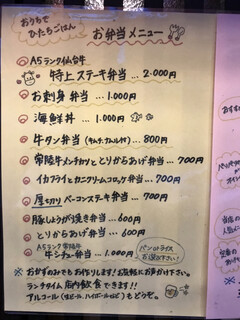 おうちで
ひたちごはん
お弁当メニュー
A5ランク仙台牛
特上ステーキ弁当 … 2.000円
お刺身弁当 … 1.000円
海鮮丼 … 1.000円
牛タン弁当(キムチ、ナムル付) … 800円
常陸牛メンチカツととりからあげ弁当 … 700円
イカフライとカニクリームコロッケ弁当 … 700円
厚切りベーコンステーキ弁当 … 700円
豚しょうが焼き弁当 … 600円
とりからあげ弁当 … 600円
A5ランク常陸牛
牛シチュー弁当 … 1.000円
パンorライス
お選び下さい!
※ おかずのみでもお作りします!お気軽にお声がけ下さい。
ランチタイム 店内飲食できます!!
アルコール(生ビール、ハイボールなど)もどうぞ。